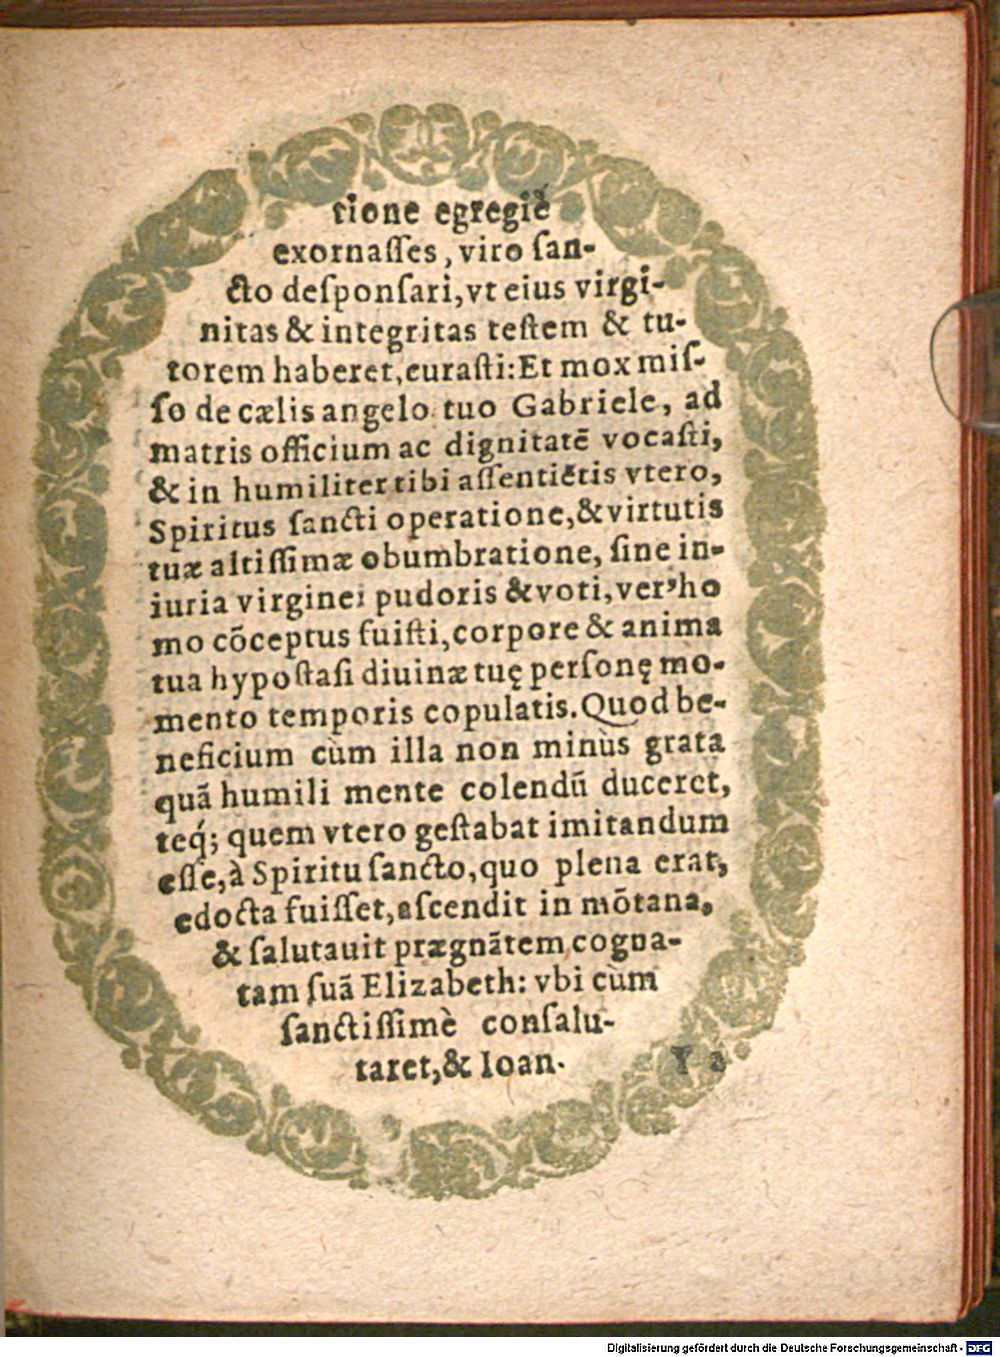 tione egregiè
exornaſſes, viro ſan-
cto deſponſari, vt eius virgi-
nitas & integritas teſtem & tu-
torem haberet, curaſti: Et mox miſ-
ſo de cælis angelo tuo Gabriele, ad
matris officium ac dignitatē vocaſti,
& in humiliter tibi aſſentiētis vtero,
Spiritus ſancti operatione, & virtutis
tuæ altiſſimæ obumbratione, ſine in-
iuria virginei pudoris & voti, verꝰ ho
mo cōceptus fuiſti, corpore & anima
tua hypoſtaſi diuinæ tuę perſonę mo-
mento temporis copulatis. Quod be-
neficium cùm illa non minùs grata
quā humili mente colendū duceret,
teq́; quem vtero geſtabat imitandum
eſſe, à Spiritu ſancto, quo plena erat,
edocta fuiſſet, aſcendit in mōtana,
& ſalutauit prægnātem cogna-
tam ſuā Elizabeth: vbi cùm
ſanctiſſimè conſalu-
taret, & Ioan-
Y 2
Digitalisierung gefördert durch die Deutsche Forschungsgemeinschaft - DFG